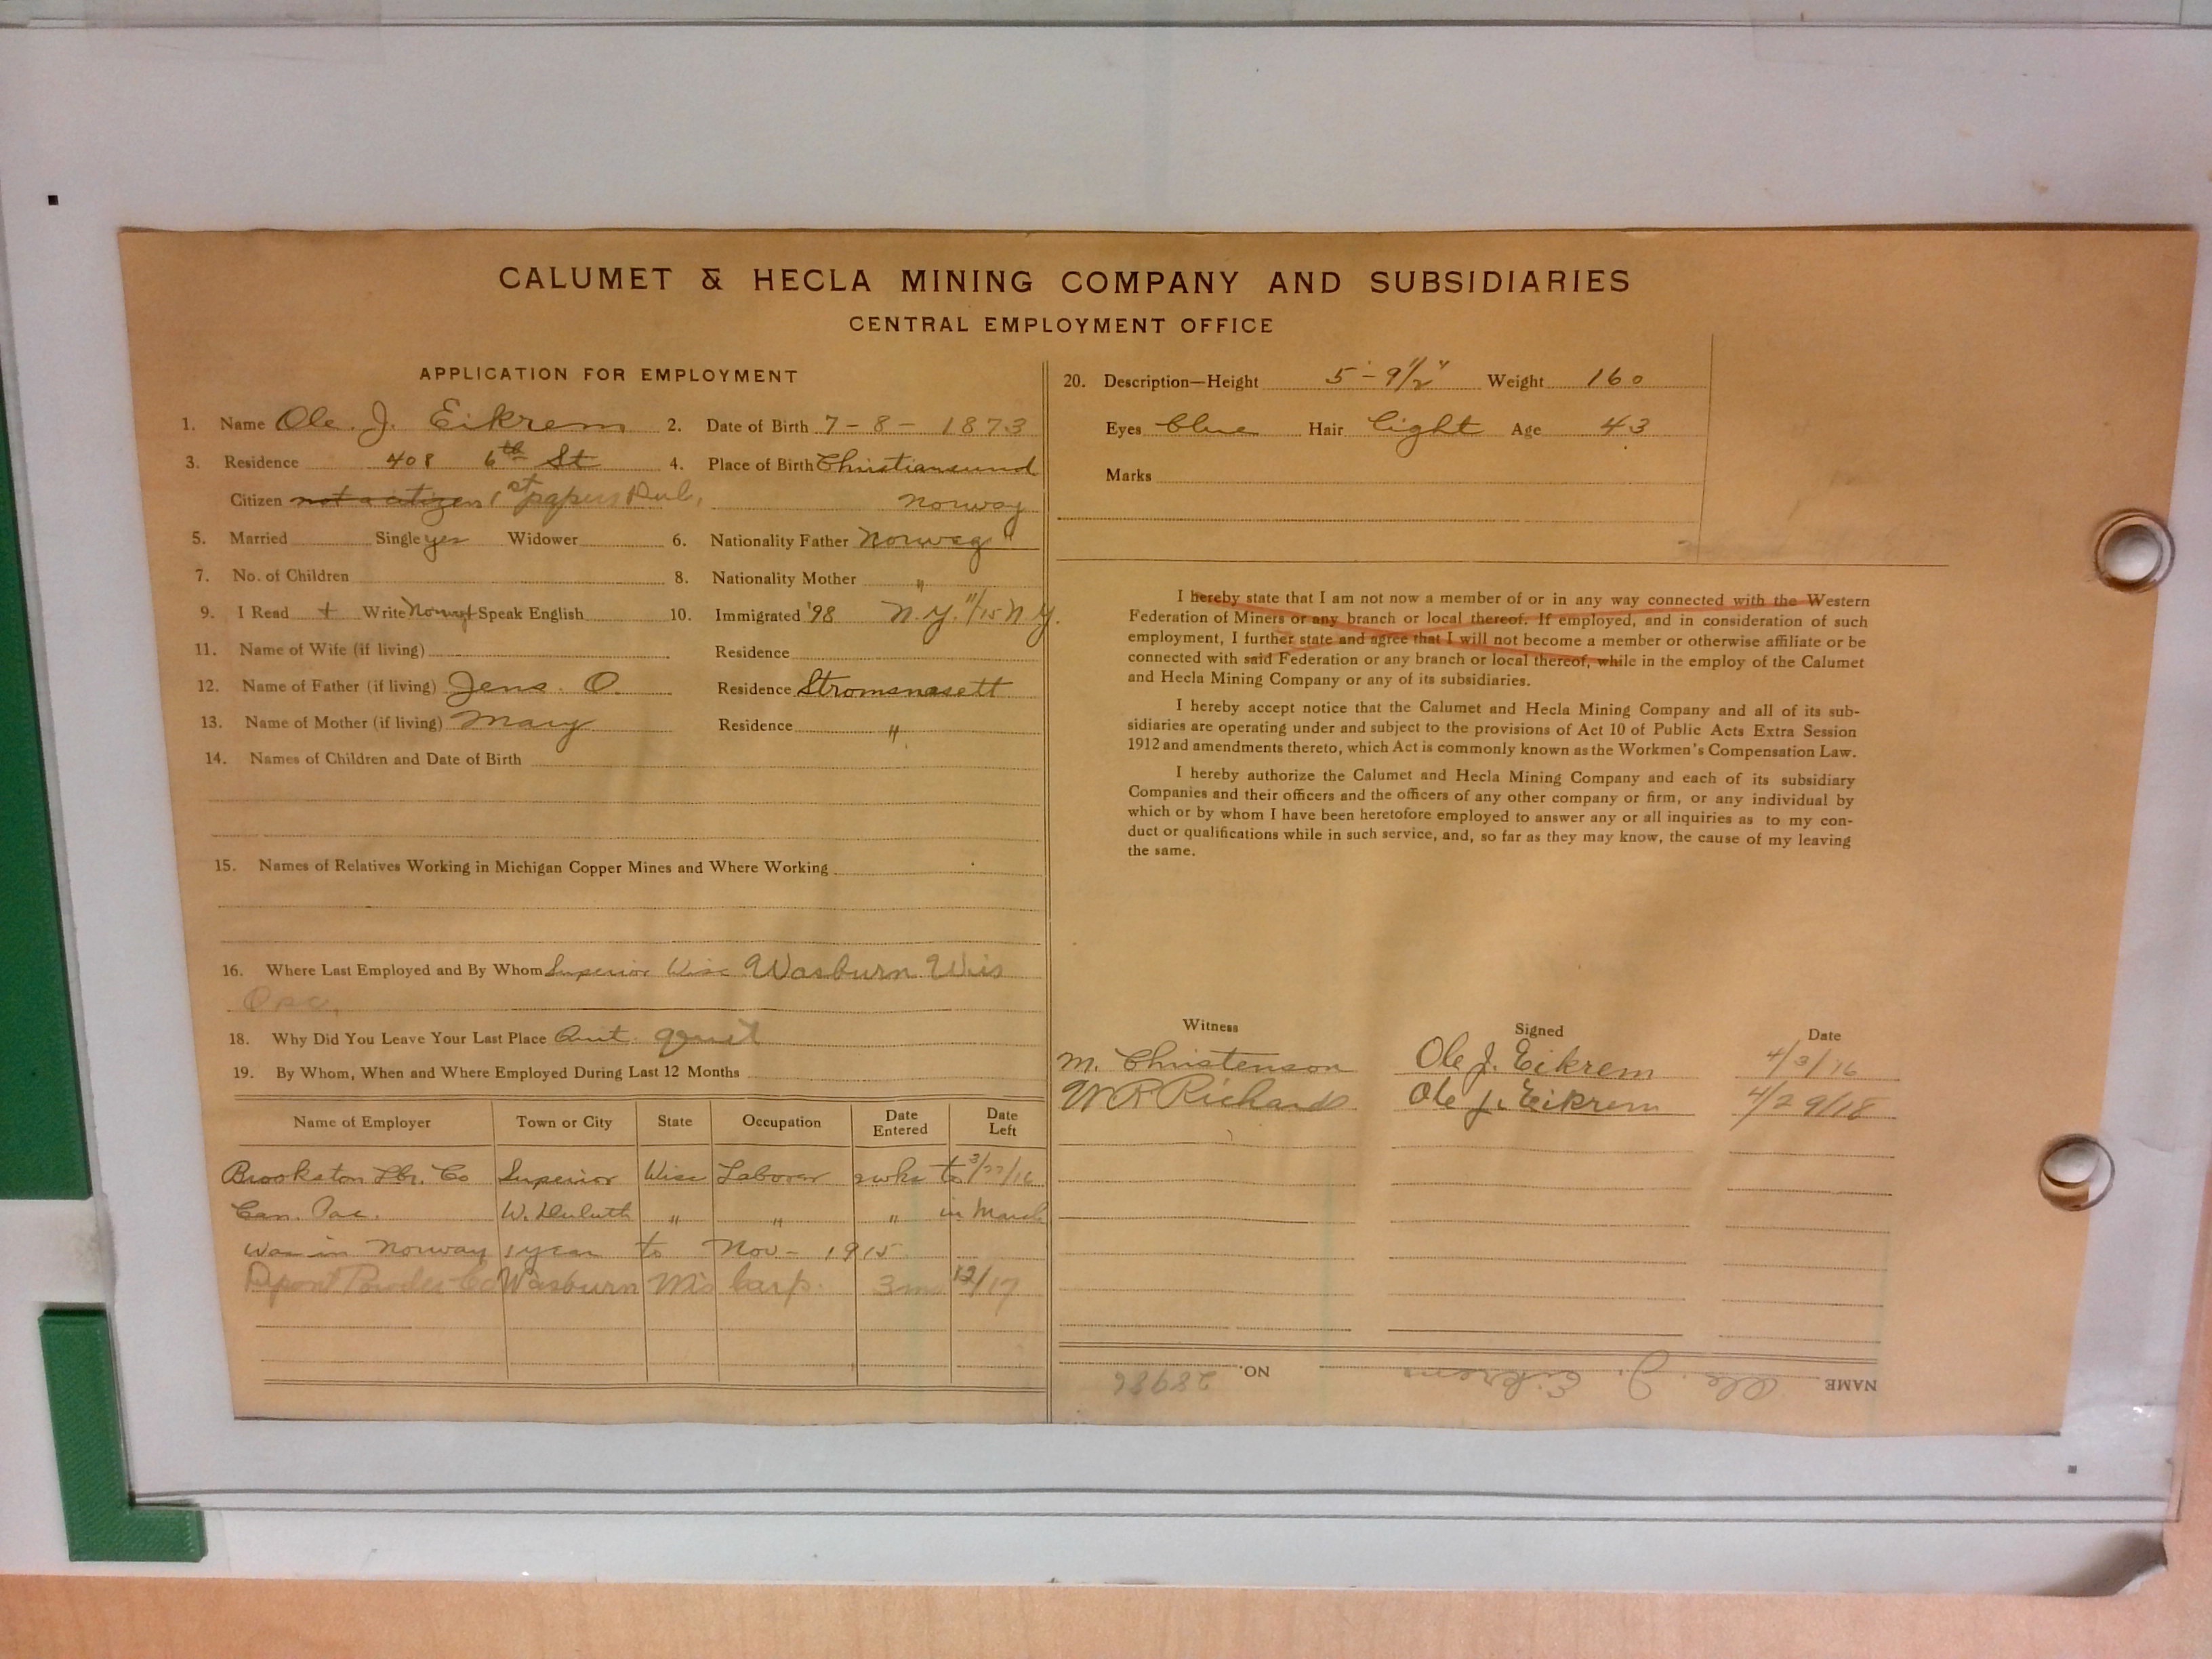 CALUMET & HECLA MINING COMPANY AND SUBSIDIARIES
CENTRAL EMPLOYMENT OFFICE
APPLICATION FOR EMPLOYMENT
1. Name Ole. J. Eikrem 2. Date of Birth 7 - 8 - 1873
3. Residence 408 6th St 4. Place of Birth Christiansund
Citizen not a citizen 1st papers Dul. Norway
5. Married Single yes Widower 6. Nationality Father Norweg"
7. No. of Children 8. Nationality Mother "
9. I Read + Write Speak English 10. Immigrated '98 N.Y. 11/15 N.Y.
11. Name of Wife (if living) Residence
12. Name of Father (if living) Jens. O. Residence Stromsnasett
13. Name of Mother (if living) Mary Residence "
14. Names of Children and Date of Birth
15. Names of Relatives Working in Michigan Copper Mines and Where Working
16. Where Last Employed and By Whom Superior Wisc Wasburn Wis
18. Why Did You Leave Your Last Place Quit. quit
19. By Whom, When and Where Employed During Last 12 Months
Name of Employer Town or City State Occupation Date Entered Date Left
Brookston Lbr. Co Superior Wisc Laborer 2wks to 3/27/16
Can. Pac. W. Duluth " " " in March
Was in Norway 1 year to Nov - 1915
Wasburn Wis Carp. 3m 12/17
20. Description—Height 5 - 9 1/2" Weight 160
Eyes blue Hair light Age 43
Marks
I hereby state that I am not now a member of or in any way connected with the Western
Federation of Miners or any branch or local thereof. If employed, and in consideration of such
employment, I further state and agree that I will not become a member or otherwise affiliate or be
connected with said Federation or any branch or local thereof, while in the employ of the Calumet
and Hecla Mining Company or any of its subsidiaries.
I hereby accept notice that the Calumet and Hecla Mining Company and all of its sub-
sidiaries are operating under and subject to the provisions of Act 10 of Public Acts Extra Session
1912 and amendments thereto, which Act is commonly known as the Workmen's Compensation Law.
I hereby authorize the Calumet and Hecla Mining Company and each of its subsidiary
Companies and their officers and the officers of any other company or firm, or any individual by
which or by whom I have been heretofore employed to answer any or all inquiries as to my con-
duct or qualifications while in such service, and, so far as they may know, the cause of my leaving
the same.
Witness Signed Date
M. Christenson Ole J. Eikrem 4/3/16
W R Richards Ole J. Eikrem 4/29/18
NAME Ole. J. Eikrem NO. 28986